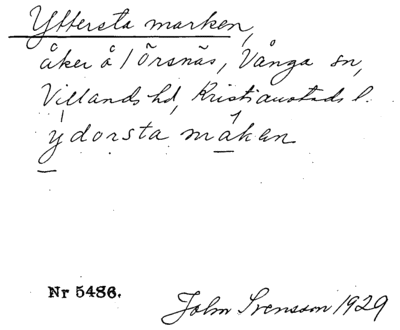 Yttersta marken,
åker å 1 Örsnäs, Vånga sn,
Villands hd, Kristianstads l.
ydorsta måken
Nr 5486.
John Svensson 1929